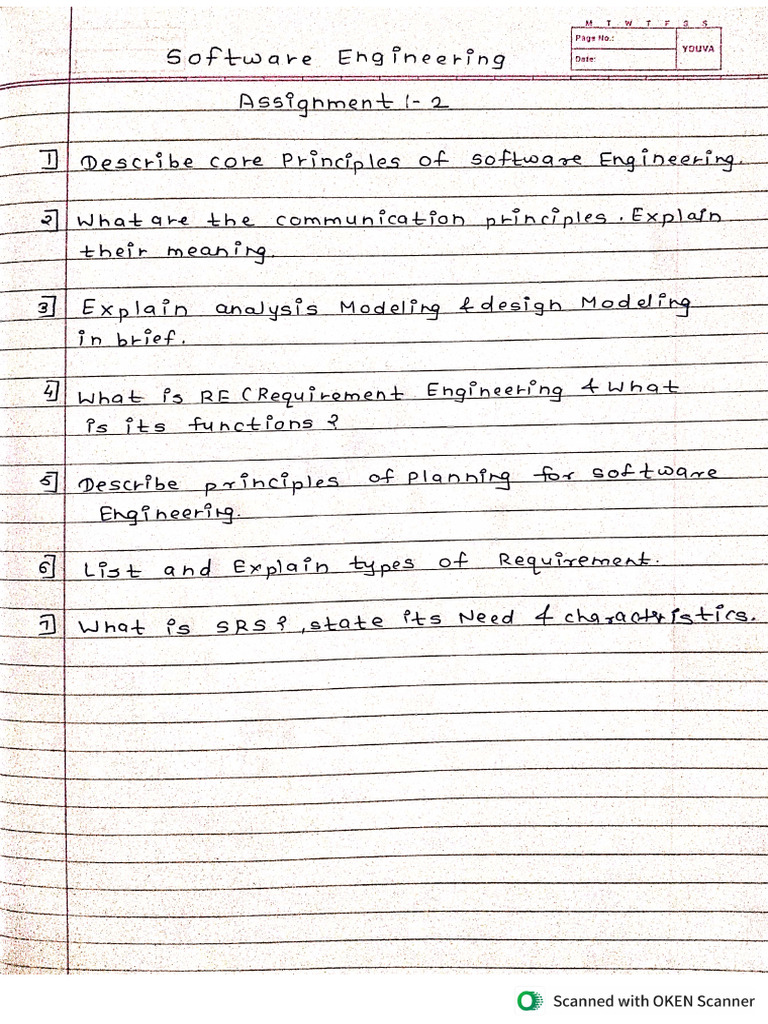 M T W T F S S
Page No.:
Date:
YOUVA
Software Engineering
Assignment :- 2
1] Describe core Principles of Software Engineering.
2] What are the communication principles. Explain
their meaning.
3] Explain analysis Modeling & design Modeling
in brief.
4] What is RE (Requirement Engineering & what
is its functions ?
5] Describe principles of planning for software
Engineering.
6] List and Explain types of Requirement.
7] What is SRS?, state its Need & characteristics.
Scanned with OKEN Scanner